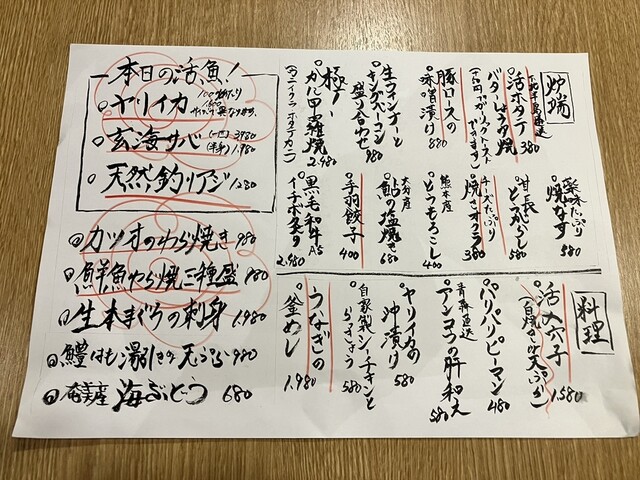 本日の活魚!
ヤリイカ
玄海サバ (一匹) 3980
(半身) 1.980
天然釣りアジ 1280
カツオのわら焼き 980
鮮魚わら焼三種盛
生本まぐろの刺身 1.980
鱧はも湯引きか天ぷら 980
奄美産 海ぶどう 680
炉端
下北半島直送
活ホタテ 380
バターしょうゆ焼
豚ロースの
味噌漬け 880
生ウィンナーと
キングベーコン
盛り合わせ 980
極み
カニ甲羅焼 2.480
(カニ イクラ ホタテ カニ)
薬味たっぷり
焼なす 580
甘長
とうがらし 580
チーズたっぷり
焼きオクラ 380
熊本産
とうもろこし 400
大分産
鮎の塩焼 680
手羽餃子 400
黒毛和牛A5
イチボ炙り 2.980
料理
活〆穴子
(白焼きか天ぷら) 1.580
パリパリピーマン 480
青森直送
アンコウの肝和え 580
ヤリイカの
沖漬け 580
自家製シーチキンと
らっきょう 580
うなぎの
釜めし 1.980